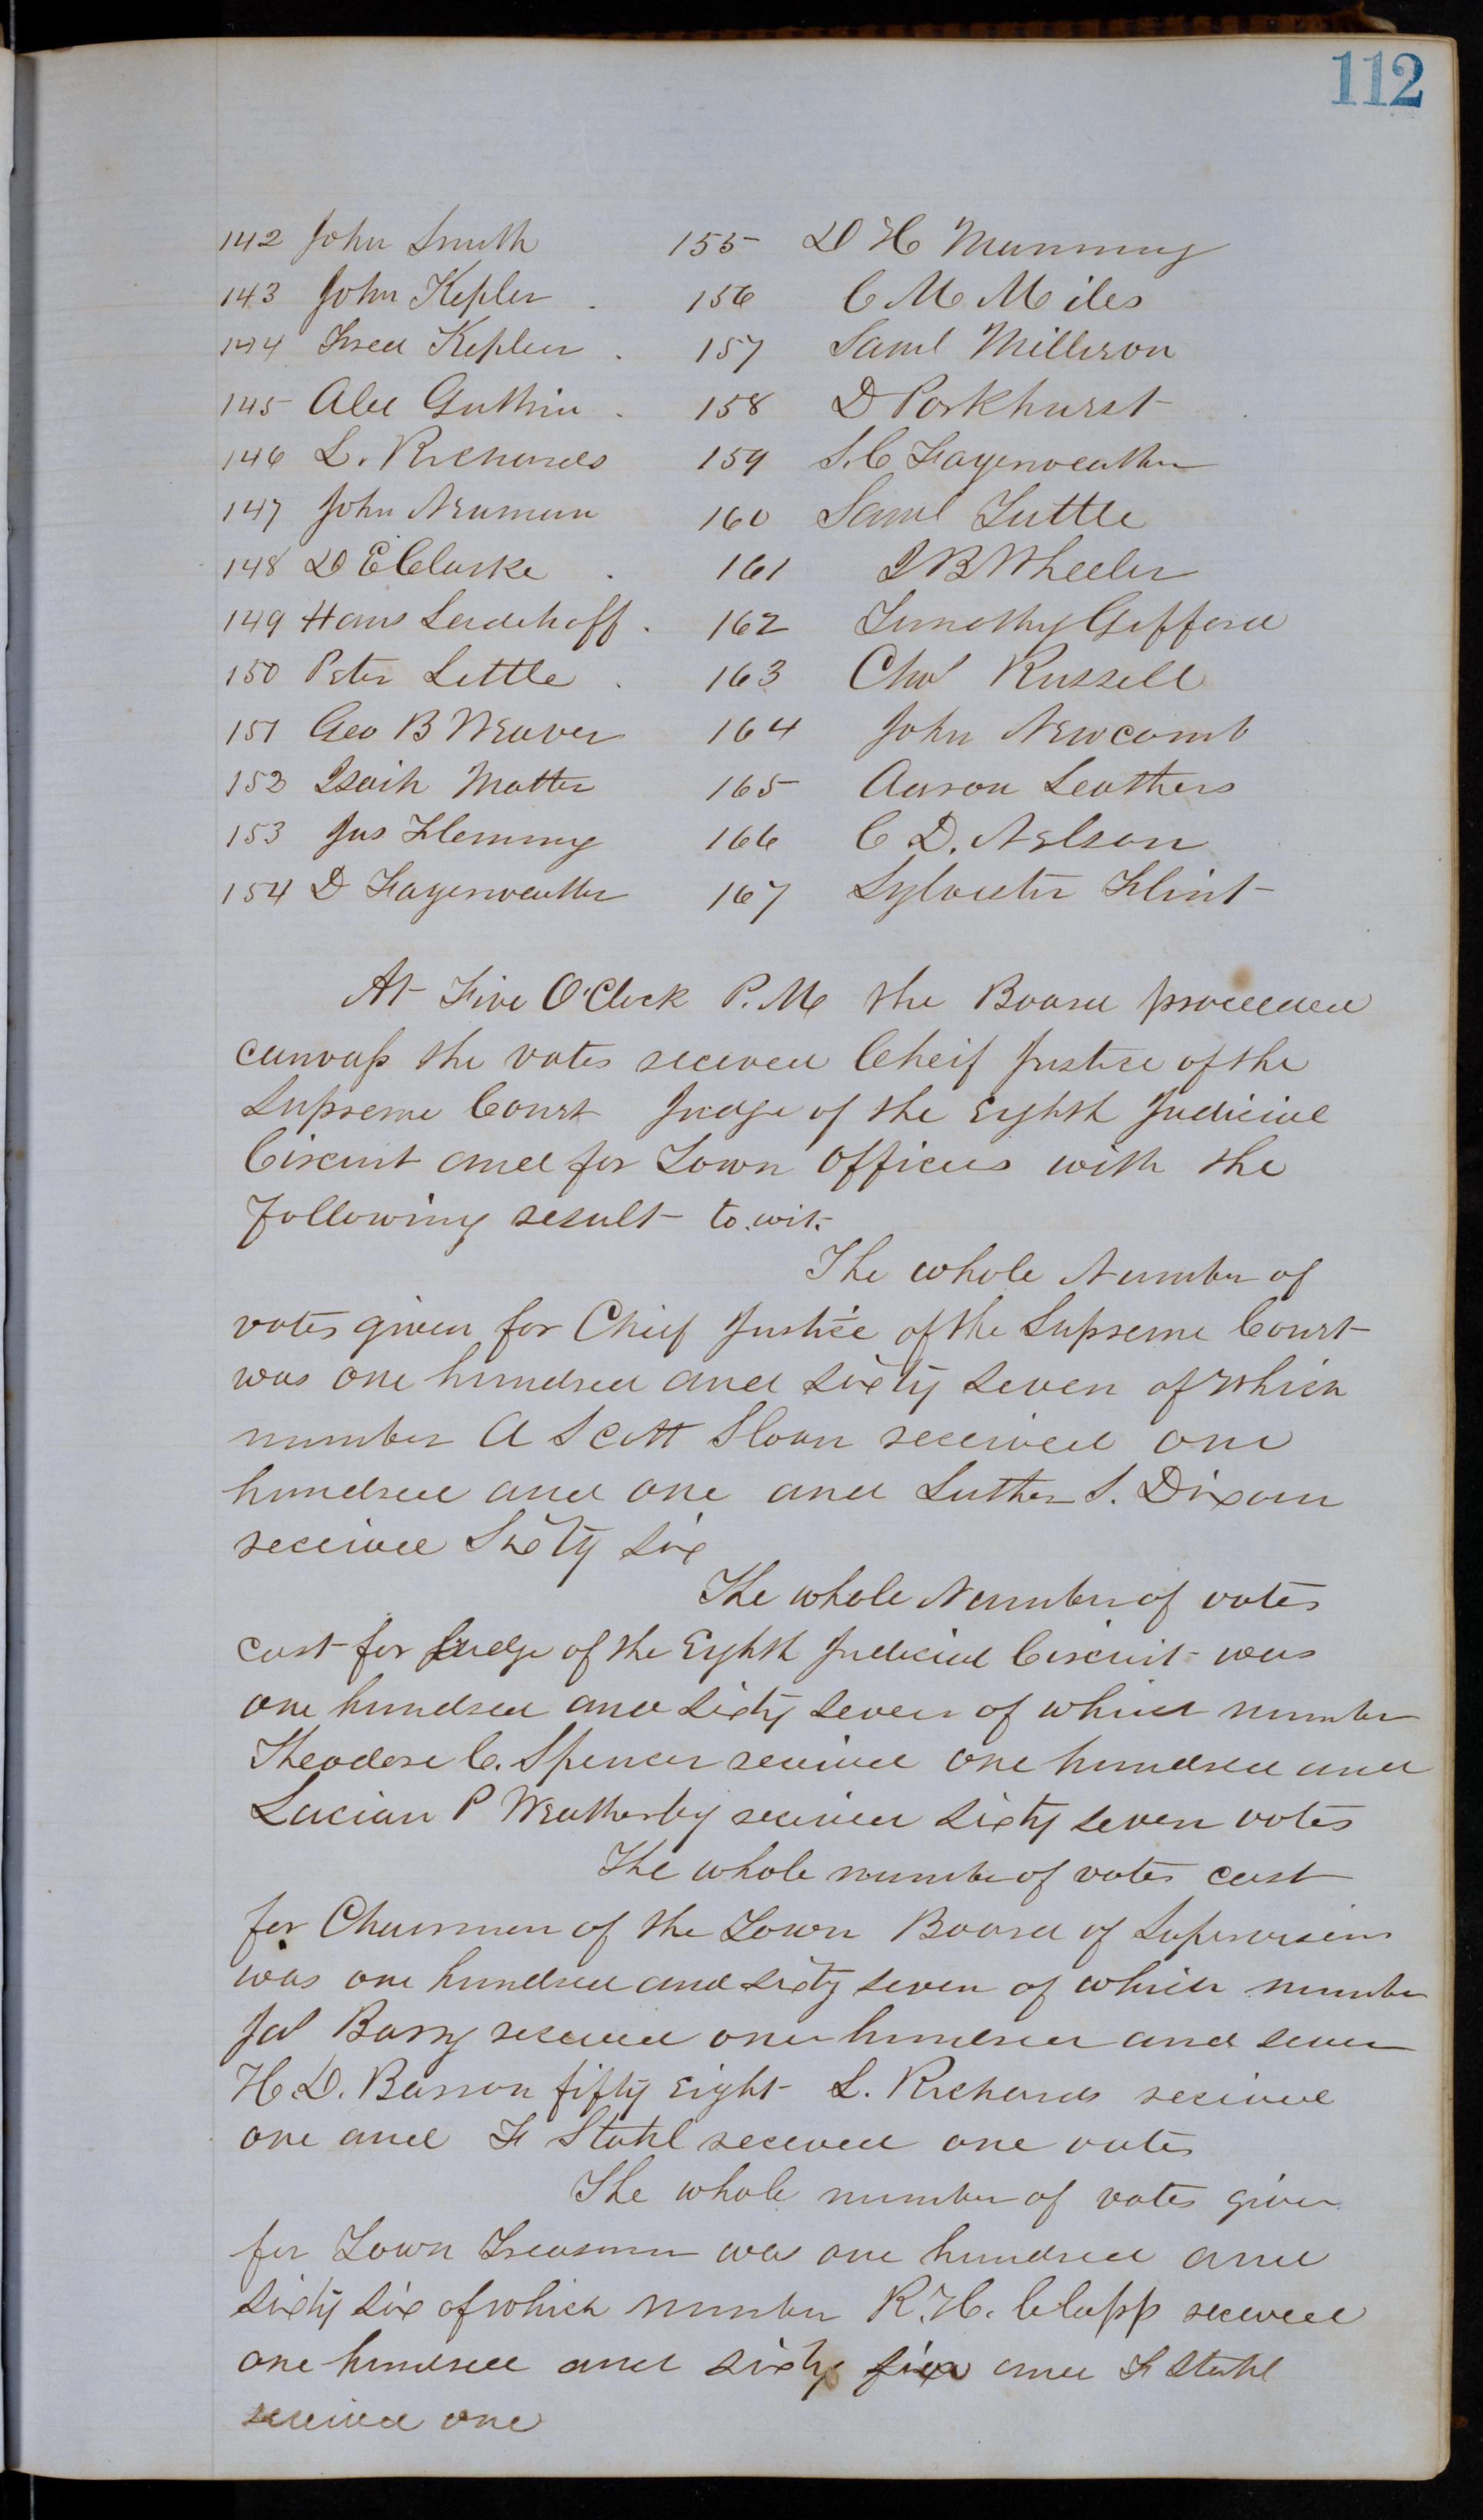 112
142 John Smith 155 D H Munning
143 John Kepler 156 C M Miles
144 Fred Kepler 157 Saml Millison
145 Alec Guthrie 158 D Parkhurst
146 L. Richards 159 S. C Fayerweather
147 John Neuman 160 Saml Tuttle
148 D E Clarke 161 I B Wheeler
149 Hans 162 Timothy Gifford
150 Peter Little 163 Chas Russell
151 Geo B Weaver 164 John Newcomb
152 Isaih Matter 165 Aaron Leathers
153 Jas Fleming 166 C D. Nelson
154 D Fayerweather 167 Sylvester Flint
At Five O'Clock P. M the Board proceeded
canvass the votes received Cheif Justice of the
Supreme Court Judge of the Eighth Judicial
Circuit and for Town Officers with the
following result to wit.
The whole Number of
votes given for Chief Justice of the Supreme Court
was one hundred and sixty seven of which
number A Scott Sloan received one
hundred and one and Luther S. Dixon
received Sixty six
The whole Number of votes
cast for Judge of the Eighth Judicial Circuit was
one hundred and sixty seven of which number
Theodore C. Spencer received one hundred and
Lucian P Weatherby received sixty seven votes
The whole number of votes cast
for Chairman of the Town Board of Supervisors
was one hundred and sixty seven of which number
Jas Barry received one hundred and seven
H. D. Barron fifty Eight L. Richards received
one and F Stahl received one votes
The whole number of votes given
for Town Treasurer was one hundred and
sixty six of which number R. H. Clapp received
one hundred and sixty five and F Stahl
received one